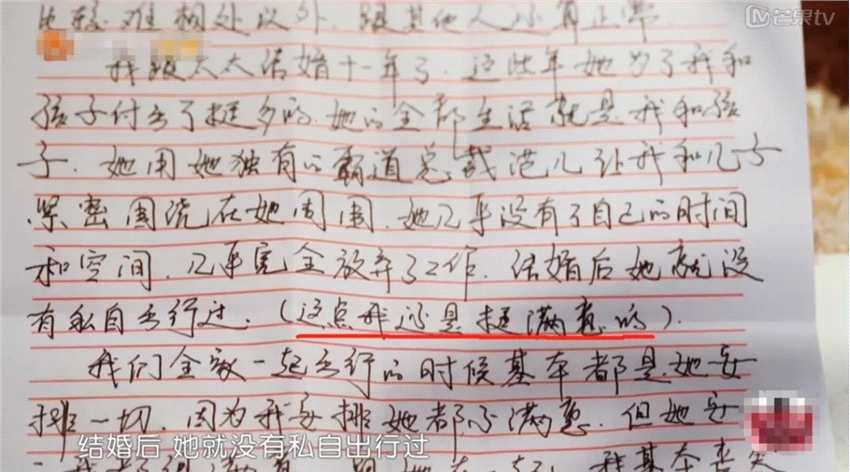 芒果tv
比较难相处以外, 跟其他人还算正常.
我跟太太结婚十一年了. 这些年她为了我和
孩子付出了挺多的. 她的全部生活就是我和孩
子. 她用她独有的霸道总裁范儿让我和儿子
紧密围绕在她周围. 她几乎没有了自己的时间
和空间. 几乎完全放弃了工作. 结婚后她就没
有私自出行过. (这点我还是挺满意的).
我们全家一起出行的时候基本都是她安
排一切. 因为我安排她都不满意. 但她安
结婚后 她就没有私自出行过